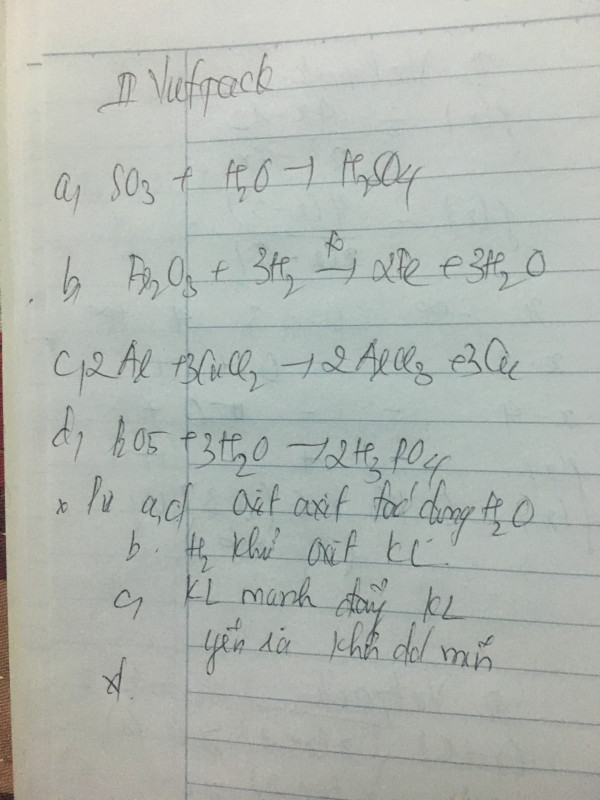 II Viết ptpứ
a, SO3 + H2O → H2SO4
b, Fe2O3 + 3H2 t° → 2Fe + 3H2O
c, 2Al + 3CuCl2 → 2AlCl3 + 3Cu
d, P2O5 + 3H2O → 2H3PO4
x Pư a,d oxit axit tác dụng H2O
b. H2 khử oxit KL
c, KL mạnh đẩy KL
yếu ra khỏi dd muối
x